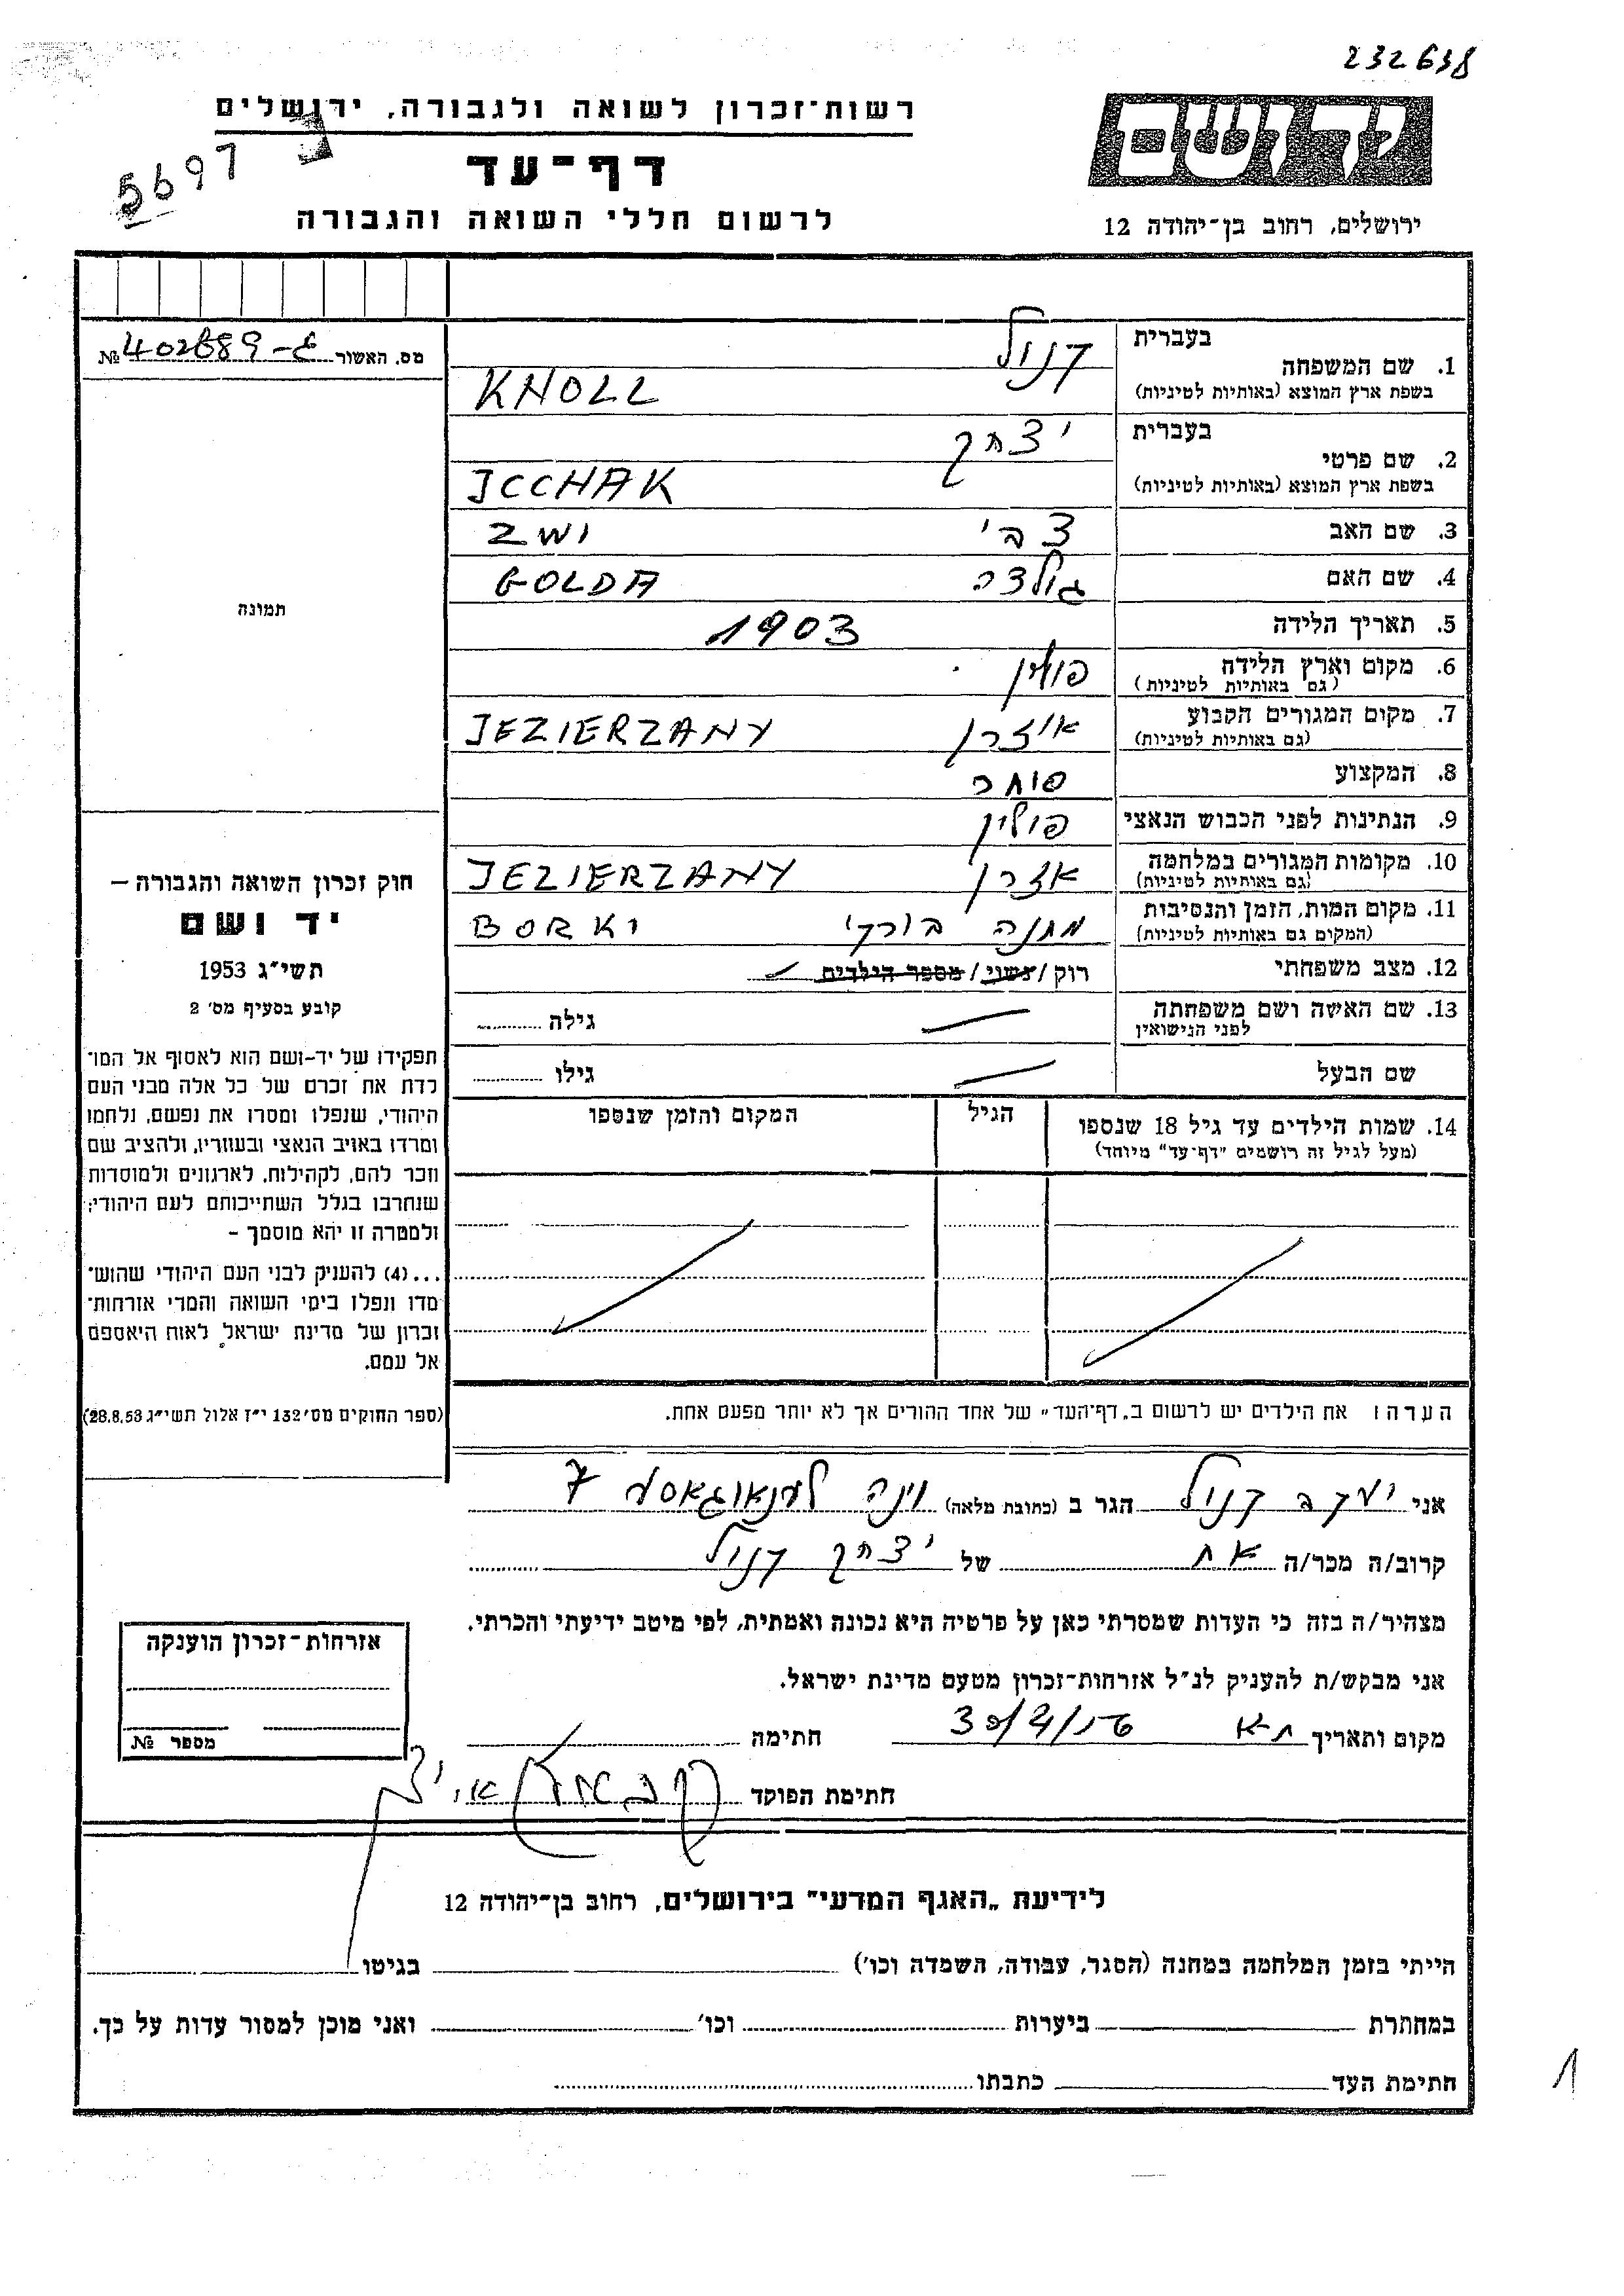 232638
רשות־זכרון לשואה ולגבורה, ירושלים
יד ושם
5697
דף־עד
לרשום חללי השואה והגבורה
ירושלים, רחוב בן־יהודה 12
מס. האשור № 402689-ג
בעברית קנול
1. שם המשפחה
בשפת ארץ המוצא (באותיות לטיניות) KNOLL
בעברית יצחק
2. שם פרטי
בשפת ארץ המוצא (באותיות לטיניות) ICCHAK
3. שם האב צבי ZWI
4. שם האם גולדה GOLDA
5. תאריך הלידה 1903
6. מקום וארץ הלידה פולין
(גם באותיות לטיניות)
7. מקום המגורים הקבוע JEZIERZANY
(גם באותיות לטיניות)
8. המקצוע סוחר
9. הנתינות לפני הכבוש הנאצי פולין
10. מקומות המגורים במלחמה JEZIERZANY
(גם באותיות לטיניות)
11. מקום המות, הזמן והנסיבות מחנה בורקי BORKI
(המקום גם באותיות לטיניות)
12. מצב משפחתי רוק/נשוי/מספר הילדים
13. שם האשה ושם משפחתה גילה
לפני הנישואין
שם הבעל גילו
14. שמות הילדים עד גיל 18 שנספו הגיל המקום והזמן שנספו
(מעל לגיל זה רושמים "דף־עד" מיוחד)
הערה: את הילדים יש לרשום ב„דף־העד" של אחד ההורים אך לא יותר מפעם אחת.
תמונה
חוק זכרון השואה והגבורה –
יד ושם
תשי"ג 1953
קובע בסעיף מס' 2
תפקידו של יד-ושם הוא לאסוף אל המו־
לדת את זכרם של כל אלה מבני העם
היהודי, שנפלו ומסרו את נפשם, נלחמו
ומרדו באויב הנאצי ובעוזריו, ולהציב שם
וזכר להם, לקהילות, לארגונים ולמוסדות
שנחרבו בגלל השתייכותם לעם היהודי;
ולמטרה זו יהא מוסמך –
...(4) להעניק לבני העם היהודי שהוש־
מדו ונפלו בימי השואה והמרי אזרחות־
זכרון של מדינת ישראל, לאות היאספם
אל עמם.
(ספר החוקים מס' 132 י"ז אלול תשי"ג 28.8.53)
אני יעקב קנול הגר ב (כתובת מלאה) וינה 7
קרוב/ה מכר/ה אח של יצחק קנול
מצהיר/ה בזה כי העדות שמסרתי כאן על פרטיה היא נכונה ואמתית, לפי מיטב ידיעתי והכרתי.
אני מבקש/ת להעניק לנ"ל אזרחות־זכרון מטעם מדינת ישראל.
מקום ותאריך ת-א חתימה
חתימת הפוקד
אזרחות־זכרון הוענקה
מספר №
לידיעת „האגף המדעי" בירושלים, רחוב בן־יהודה 12
הייתי בזמן המלחמה במחנה (הסגר, עבודה, השמדה וכו') בגיטו
במחתרת ביערות וכו' ואני מוכן למסור עדות על כך.
חתימת העד כתבתו
1